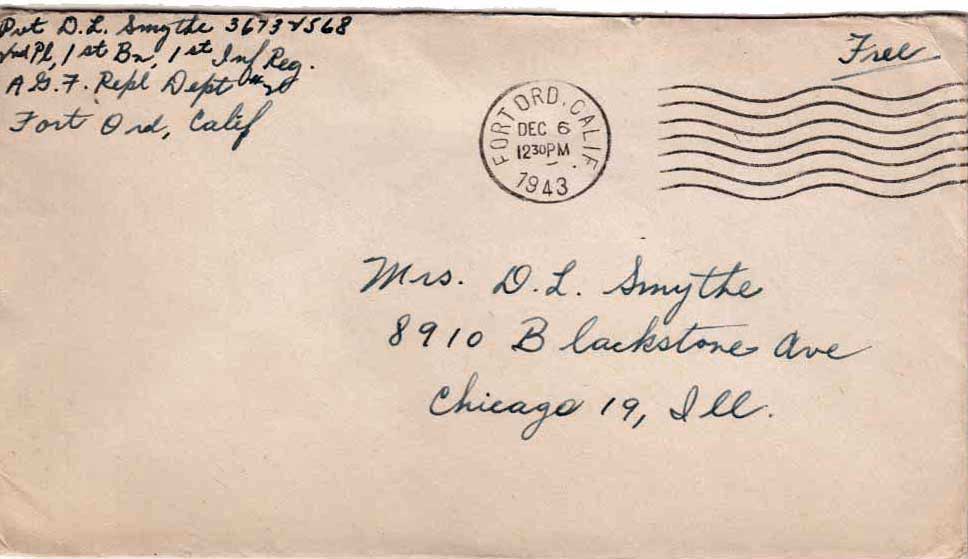 Pvt D.L. Smythe 36732568
2nd Pl, 1st Bn, 1st Inf Reg.
A.G.F. Repl Dept #2
Fort Ord, Calif
Free
FORT ORD, CALIF.
DEC 6
1230PM
1943
Mrs. D.L. Smythe
8910 Blackstone Ave
Chicago 19, Ill.